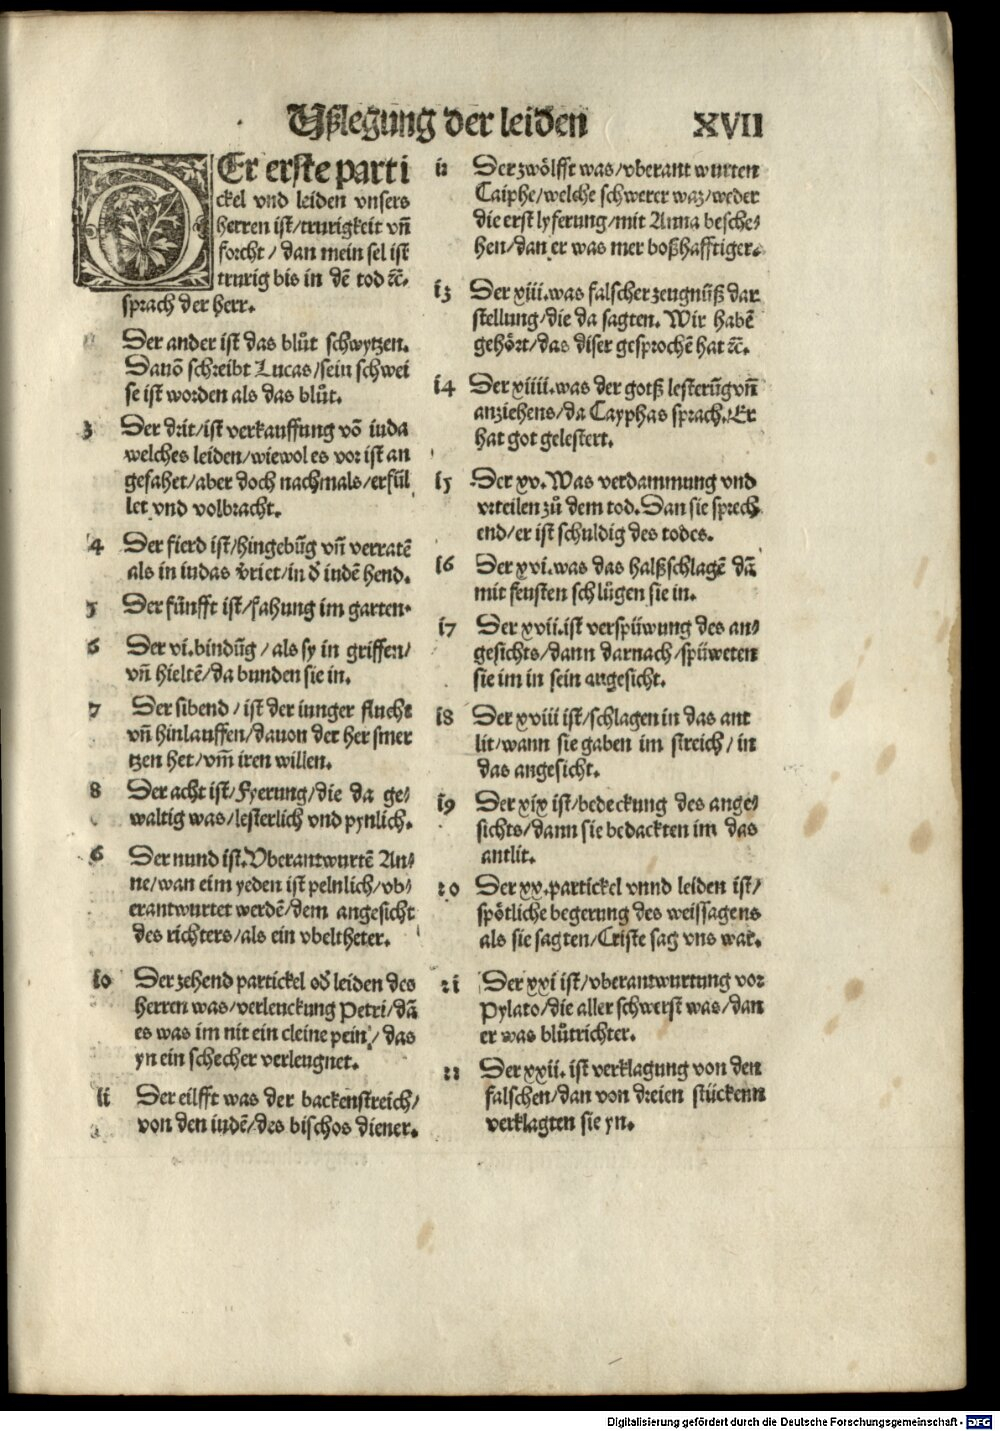 Vßlegung der leiden XVII
DEr erste parti
ckel vnd leiden vnsers
herren ist/trurigkeit vñ
forcht/dan mein sel ist
trurig bis in dē tod ꝛc̄.
sprach der herr.
Der ander ist das blůt schwytzen.
Dauō schreibt Lucas/sein schwei
se ist worden als das blůt.
3 Der drit/ist verkauffung vō iuda
welches leiden/wiewol es vor ist an
gefahet/aber doch nachmals/erfül
let vnd volbracht.
4 Der fierd ist/hingebūg vñ verratē
als in iudas v̄riet/in d̄ indē hend.
5 Der fünfft ist/fahung im garten.
6 Der vi.bindūg/als sy in griffen/
vñ hieltē/da bunden sie in.
7 Der sibend/ist der iunger flucht
vñ hinlauffen/dauon der her smer
tzen het/vm̄ iren willen.
8 Der acht ist/Fyerung/die da ge⸗
waltig was/lesterlich vnd pynlich.
6 Der nund ist.Vberantwurtē An⸗
ne/wan eim yeden ist pelnlich/vb⸗
erantwurtet werdē/dem angesicht
des richters/als ein vbeltheter.
10 Der zehend partickel od̄ leiden des
herren was/verleuckung Petri/dā
es was im nit ein cleine pein/das
yn ein schecher verleugnet.
11 Der eilfft was der backenstreich/
von den iudē/des bischos diener.
12 Der zwölfft was/vberant wurten
Caiphe/welche schwerer waz/weder
die erst lyferung/mit Anna besche⸗
hen/dan er was mer boßhafftiger.
13 Der xiii.was falscher zeugnüß dar
stellung/die da sagten. Wir habē
gehört/das diser gesprochē hat ꝛc̄.
14 Der xiiii.was der gotß lesterūg vñ
anziehens/da Cayphas sprach.Er
hat got gelestert.
15 Der xv.Was verdammung vnd
vrteilen zů dem tod.Dan sie sprech
end/er ist schuldig des todes.
16 Der xvi.was das halßschlagē dā
mit feusten schlůgen sie in.
17 Der xvii.ist verspüwung des an⸗
gesichts/dann darnach/spüweten
sie im in sein angesicht.
18 Der xviii ist/schlagen in das ant
lit/wann sie gaben im streich/in
das angesicht.
19 Der xix ist/bedeckung des ange⸗
sichts/dann sie bedackten im das
antlit.
20 Der xx.partickel vnnd leiden ist/
spötliche begerung des weissagens
als sie sagten/Criste sag vns war.
21 Der xxi ist/vberantwurtung vor
Pylato/die aller schwerst was/dan
er was blůtrichter.
22 Der xxii. ist verklagung von den
falschen/dan von dreien stückenn
verklagten sie yn.
Digitalisierung gefördert durch die Deutsche Forschungsgemeinschaft - DFG